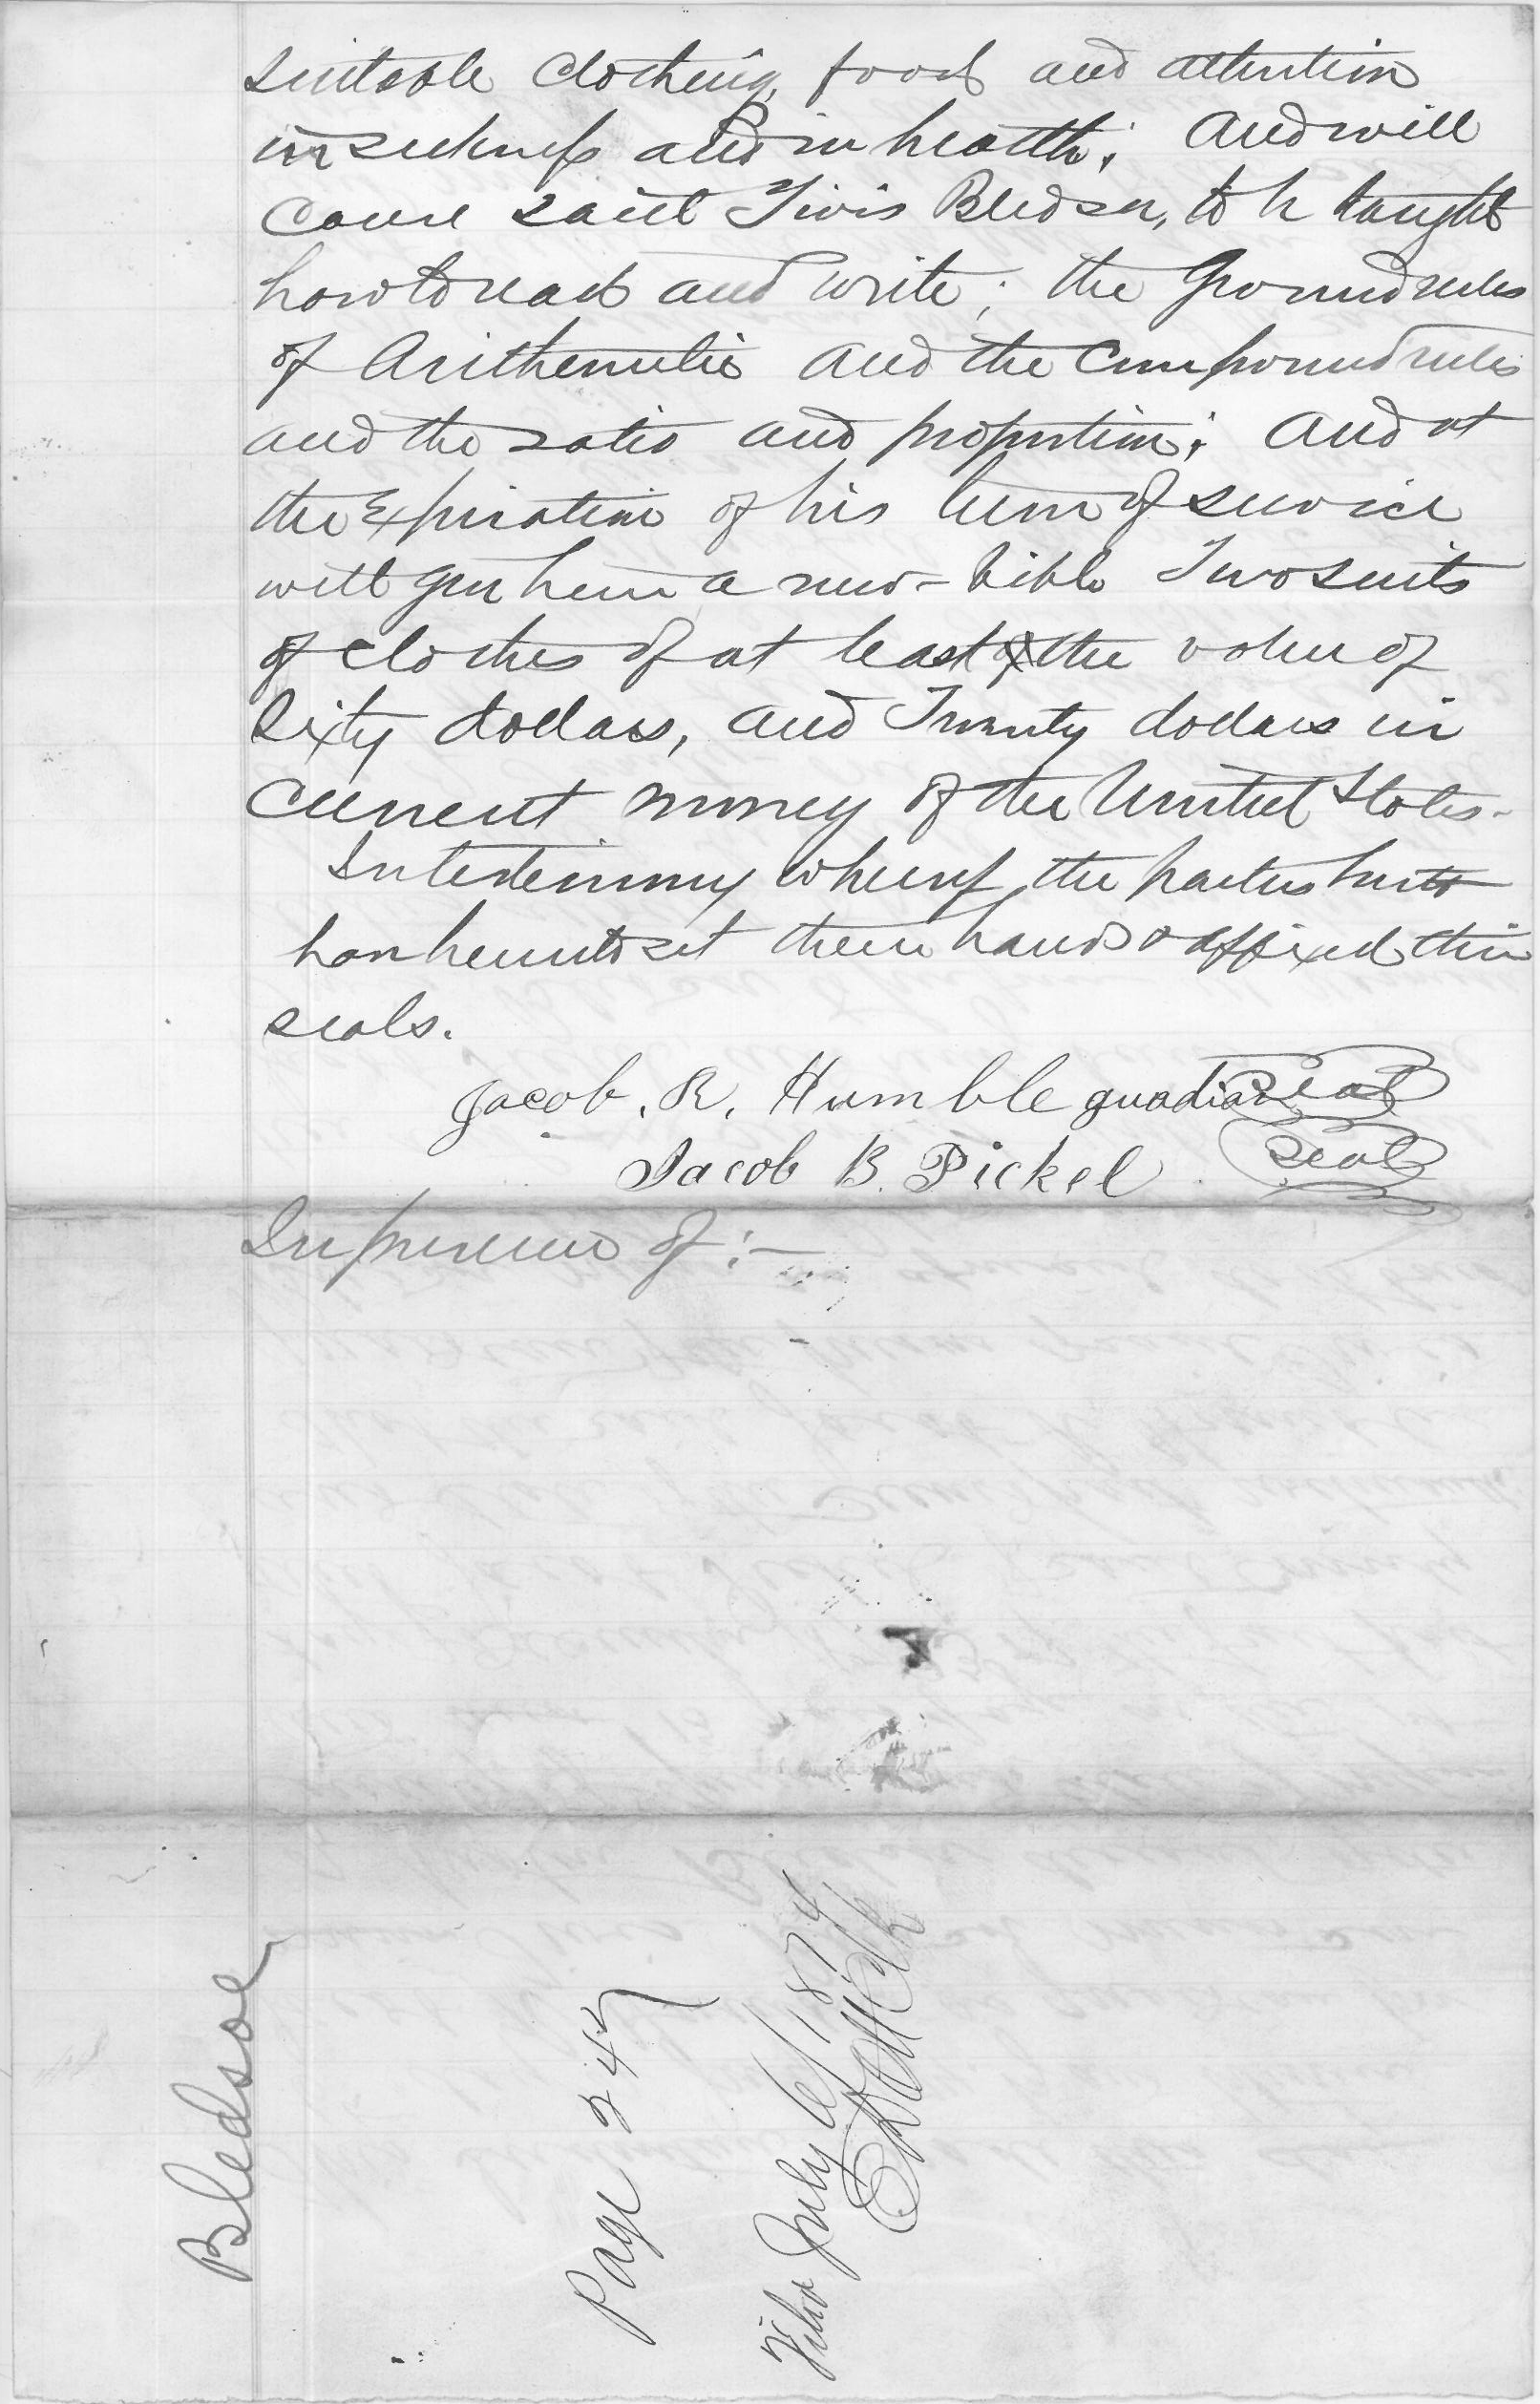 suitable clothing, food and attention
in sickness and in health; and will
cause said Tivis Bledsoe, to be taught
how to read and write; the ground rules
of Arithemetic and the compound rules
and the ratio and proportion; and at
the expiration of his term of service
will give him a new bible Two suits
of clothes of at least the value of
Sixty dollars, and Twenty dollars in
current money of the United States-
In testimony whereof the parties hereto
have hereunto set their hands & affixed their
seals.
Jacob. R. Humble guadian seal
Jacob B. Pickel seal
In presence of:-
Bledsoe
Page 247
Filed July 6/1874
Clk